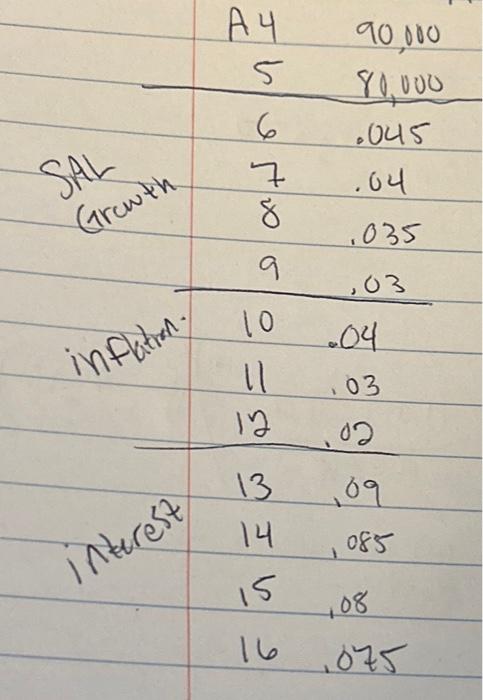 A4 90,000
5 80,000
6 .045
SAL
Growth
7 .04
8 .035
9 .03
inflation.
10 .04
11 .03
12 .02
interest
13 .09
14 .085
15 .08
16 .075